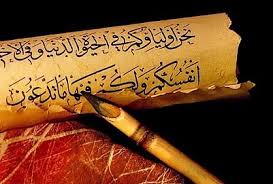 نحن أولياؤكم في الحيوة الدنيا وفي
أنفسكم ولكم فيها ما تدعون